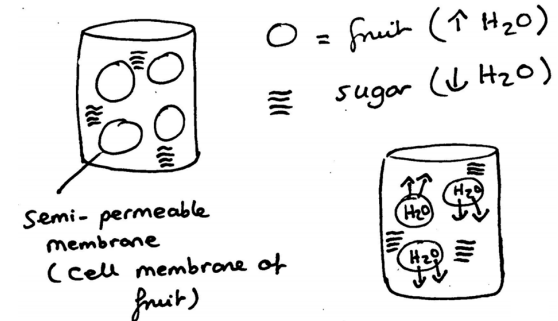 = fruit (↑ H2O)
sugar (↓ H2O)
Semi-permeable
membrane
(Cell membrane of
fruit)
H2O
H2O
H2O